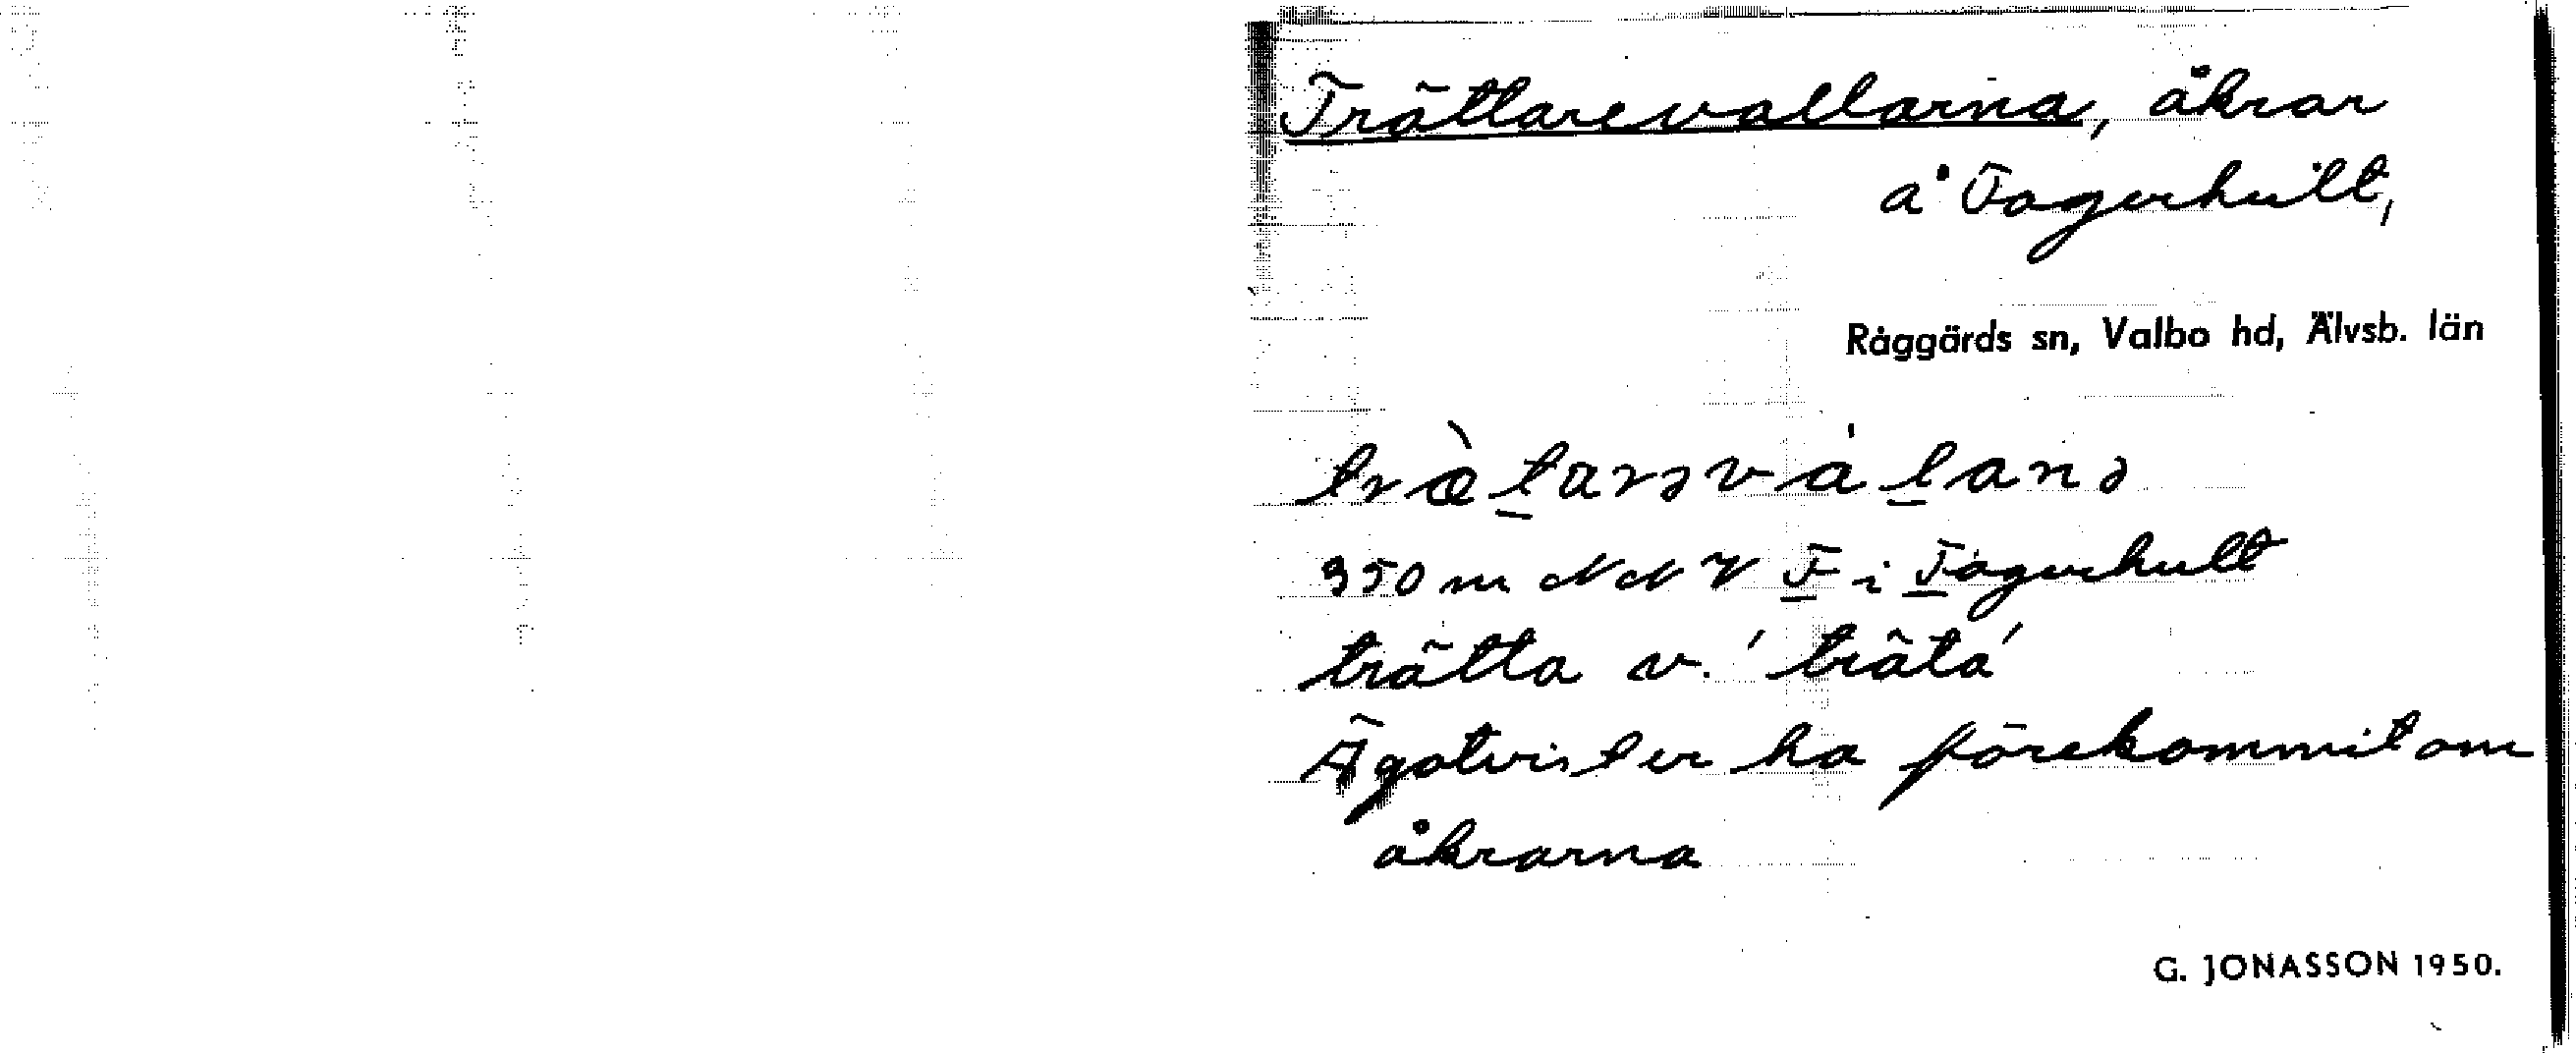 Trättarevallarna, åkrar
å Fagerhult,
Råggärds sn, Valbo hd, Älvsb. län
træ̀t̲arəvàl̲anə
350 m NNV F i Fagerhult
trätta v. 'träta'
Ägotvister ha förekommit om
åkrarna
G. JONASSON 1950.